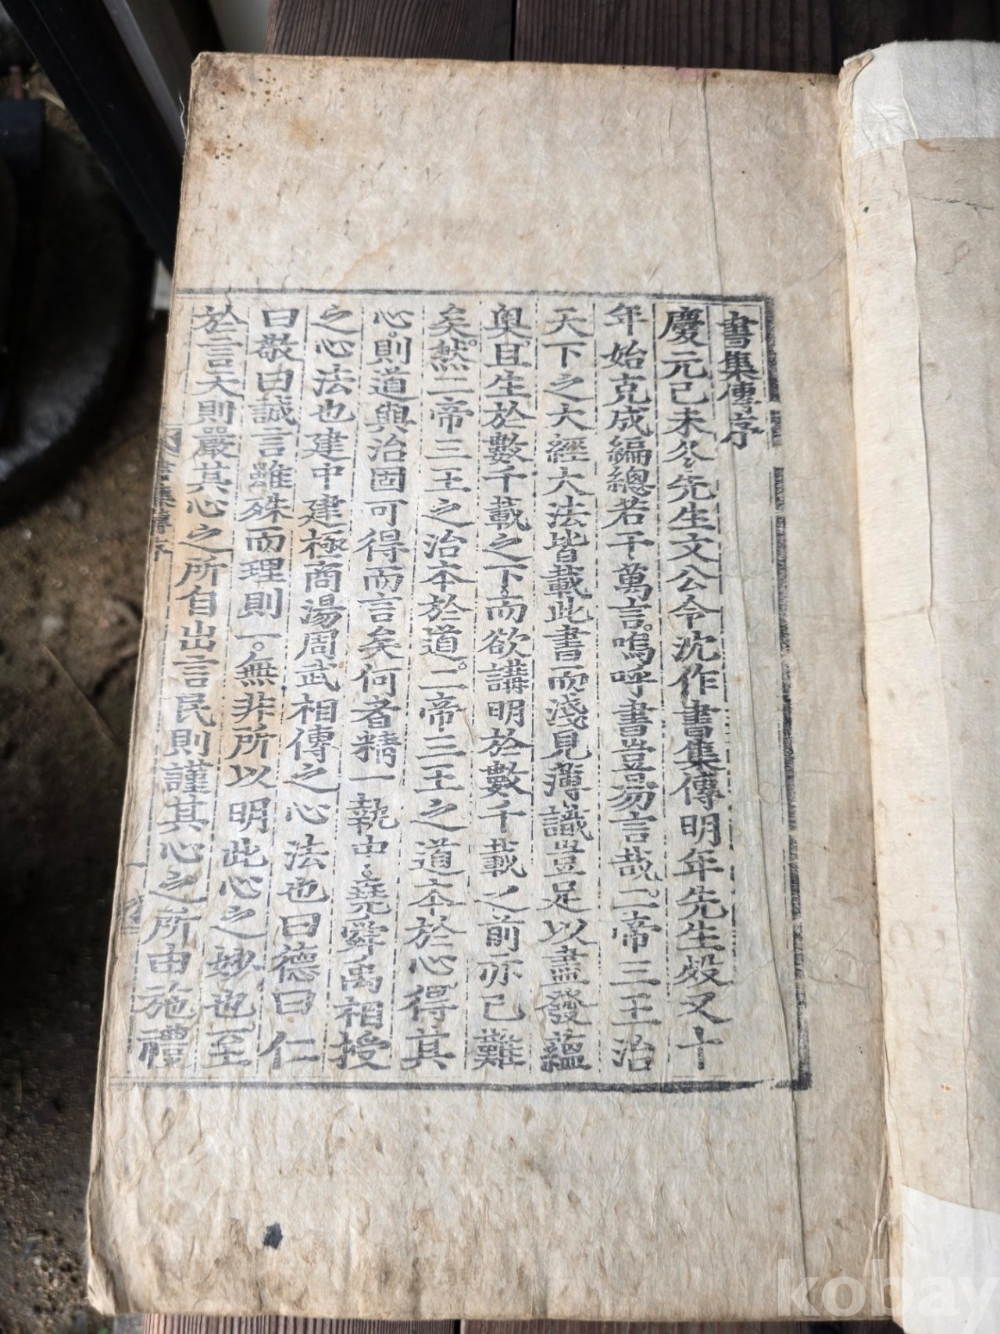 書集傳序
慶元己未冬先生文公令沈作書集傳明年先生歿又十
年始克成編總若干萬言嗚呼書豈易言哉二帝三王治
天下之大經大法皆載此書而淺見薄識豈足以盡發蘊
奧且生於數千載之下而欲講明於數千載之前亦已難
矣然二帝三王之治本於道二帝三王之道本於心得其
心則道與治固可得而言矣何者精一執中堯舜禹相授
之心法也建中建極商湯周武相傳之心法也曰德曰仁
曰敬曰誠言雖殊而理則一無非所以明此心之妙也至
於言天則嚴其心之所自出言民則謹其心之所由施禮
書集傳序
kobay